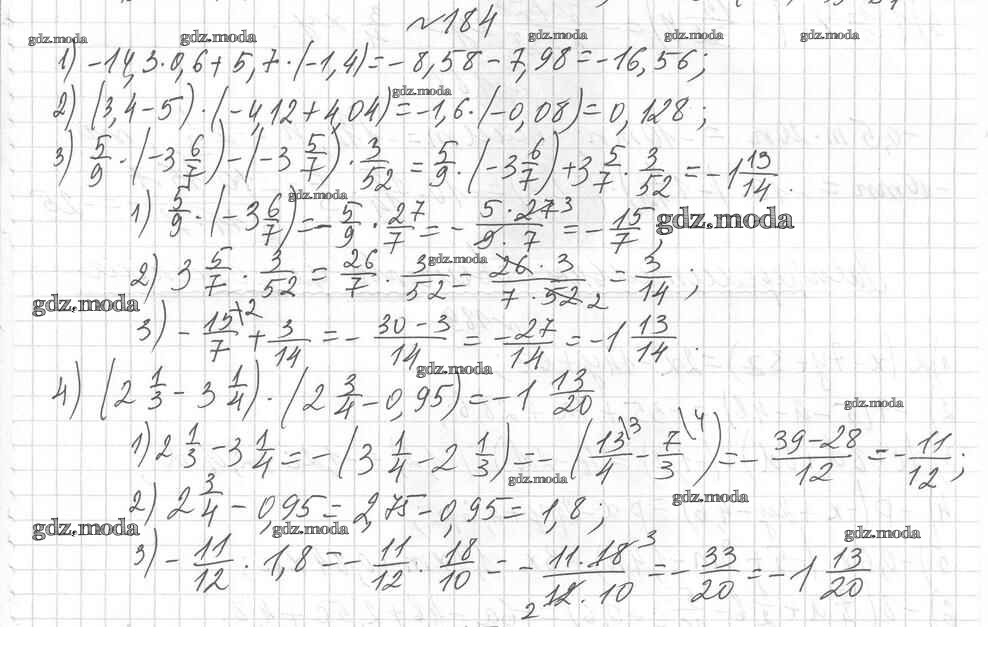 №184
gdz.moda gdz.moda gdz.moda gdz.moda gdz.moda
1) -14,3·0,6+5,7·(-1,4)=-8,58-7,98=-16,56;
gdz.moda
2) (3,4-5)·(-4,12+4,04)=-1,6·(-0,08)=0,128;
3) 5/9·(-3 6/7)-(-3 5/7)·3/52=5/9·(-3 6/7)+3 5/7·3/52=-1 13/14.
gdz.moda
1) 5/9·(-3 6/7)=-5/9·27/7=-5·27 3/9·7=-15/7; gdz.moda
gdz.moda
2) 3 5/7·3/52=26/7·3/52=26·3/7·52 2=3/14;
gdz.moda
3) -15\2/7+3/14=-30-3/14=-27/14=-1 13/14.
gdz.moda
4) (2 1/3-3 1/4)·(2 3/4-0,95)=-1 13/20
gdz.moda
1) 2 1/3-3 1/4=-(3 1/4-2 1/3)=-(13\3/4-7\4/3)=-39-28/12=-11/12;
gdz.moda gdz.moda
2) 2 3/4-0,95=2,75-0,95=1,8;
gdz.moda gdz.moda gdz.moda
3) -11/12·1,8=-11/12·18/10=-11·18 3/2 12·10=-33/20=-1 13/20